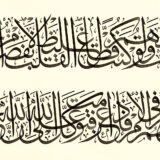 ولو كنت فظا غليظ القلب لانفضوا
في الأمر فإذا عزمت فتوكل على الله إن الله